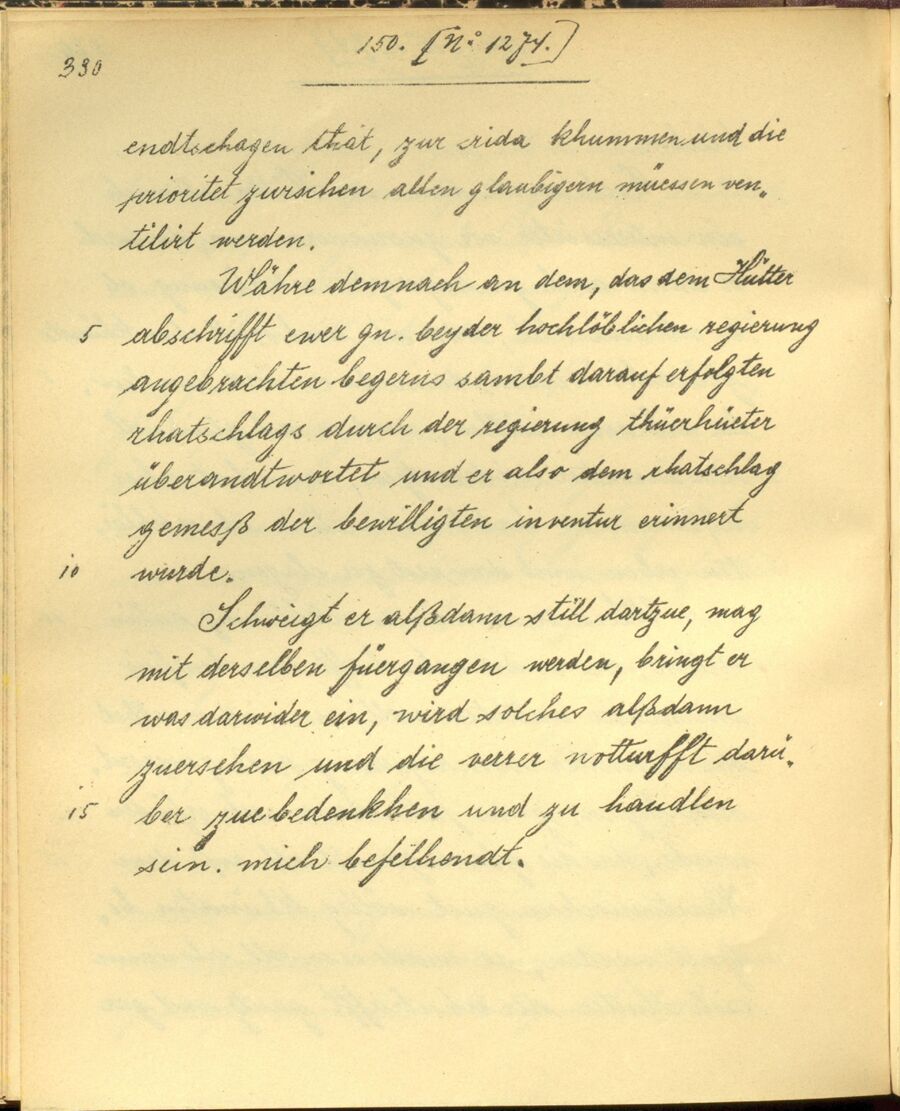 330
150. [No 1274.]
endtschagen thät, zur crida khummen und die
prioritet zwischen allen glaubigern müessen ven„
tilirt werden.
Währe demnach an dem, das dem Hütter
5 abschrifft ewer gn. bey der hochlöblichen regierung
angebrachten begerns sambt darauf erfolgten
rhatschlags durch der regierung thüerhüeter
überandtwortet und er also dem rhatschlag
gemesß der bewilligten inventur erinnert
10 wurde.
Schweigt er alßdann still dartzue, mag
mit derselben füergangen werden, bringt er
was darwider ein, wird solches alßdann
zuersehen und die verrer notturfft darü„
15 ber zue bedenkhen und zu handlen
sein. mich befelhendt.